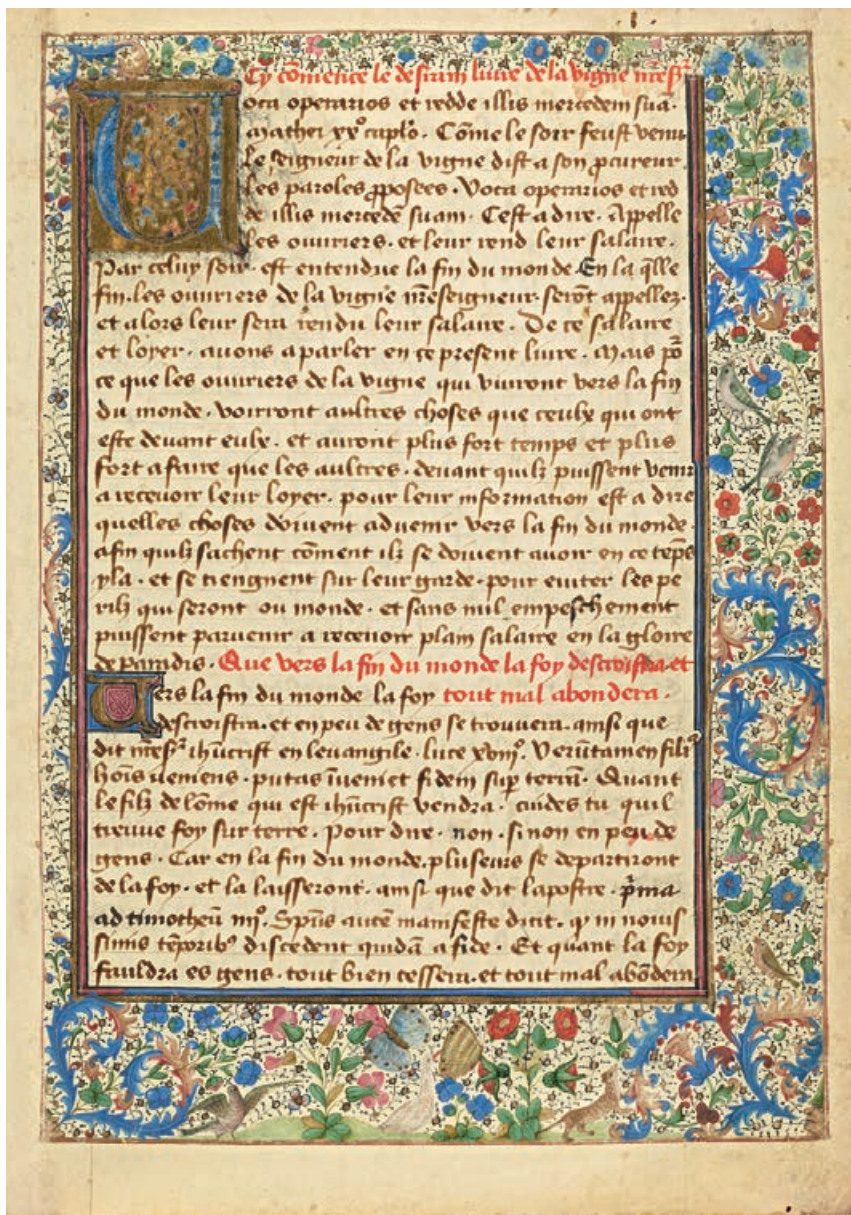 .i.
Cy cōmence le derrain liure de la vigne nr̄es̄r
Uoca operarios et redde illis mercedem suā.
Mathei xx⁰ capl̄o. Cōme le soir feust venu
le seigneur de la vigne dist a son ꝓcureur
les paroles ꝓposees. Voca operarios et red
de illis mercedē suam. Cest a dire. Appelle
les ouuriers. et leur rend leur salaire.
Par celuy soir. est entendue la fin du monde. En la q̄lle
fin. les ouuriers de la vigne nr̄eseigneur. serōt appellez.
et alors leur sera rendu leur salaire. De ce salaire
et loyer. auons a parler en ce present liure. Mais po᷑
ce que les ouuriers de la vigne qui viuront vers la fin
du monde. voirront aultres choses que ceulx qui ont
este deuant eulx. et auront plus fort temps et plus
fort a faire que les aultres. deuant quilz puissent venir
a receuoir leur loyer. pour leur informacion est a dire
quelles choses doiuent aduenir vers la fin du monde.
afin quilz sachent cōment ilz se doiuent auoir en ce tēps
yla. et se tiengnent sur leur garde. pour euiter les pe
rilz qui seront ou monde. et sans nul empeschement
puissent paruenir a receuoir plain salaire en la gloire
de paradis. Que vers la fin du monde la foy descroistra. et
Uers la fin du monde la foy tout mal abondera.
descroistra. et en peu de gens se trouuera. ainsi que
dit nr̄es̄r ihūcrist en leuangile. luce xviij⁰. Verūtamen fili⁹
hoīs ueniens. putas īueniet fidem sup̄ terrā. Quant
le filz de lōme qui est ihūcrist vendra. cuides tu quil
treuue foy sur terre. Pour dire. non. sinon en peu de
gens. Car en la fin du monde. pluseurs se departiront
de la foy. et la laisseront. ainsi que dit lapostre. p̄ma
ad timotheū iiij⁰. Sp̄us autē manifeste dicit. q̄ in nouis
simis tēporib⁹ discedent quidā a fide. Et quant la foy
fauldra es gens. tout bien cessera. et tout mal abōdera